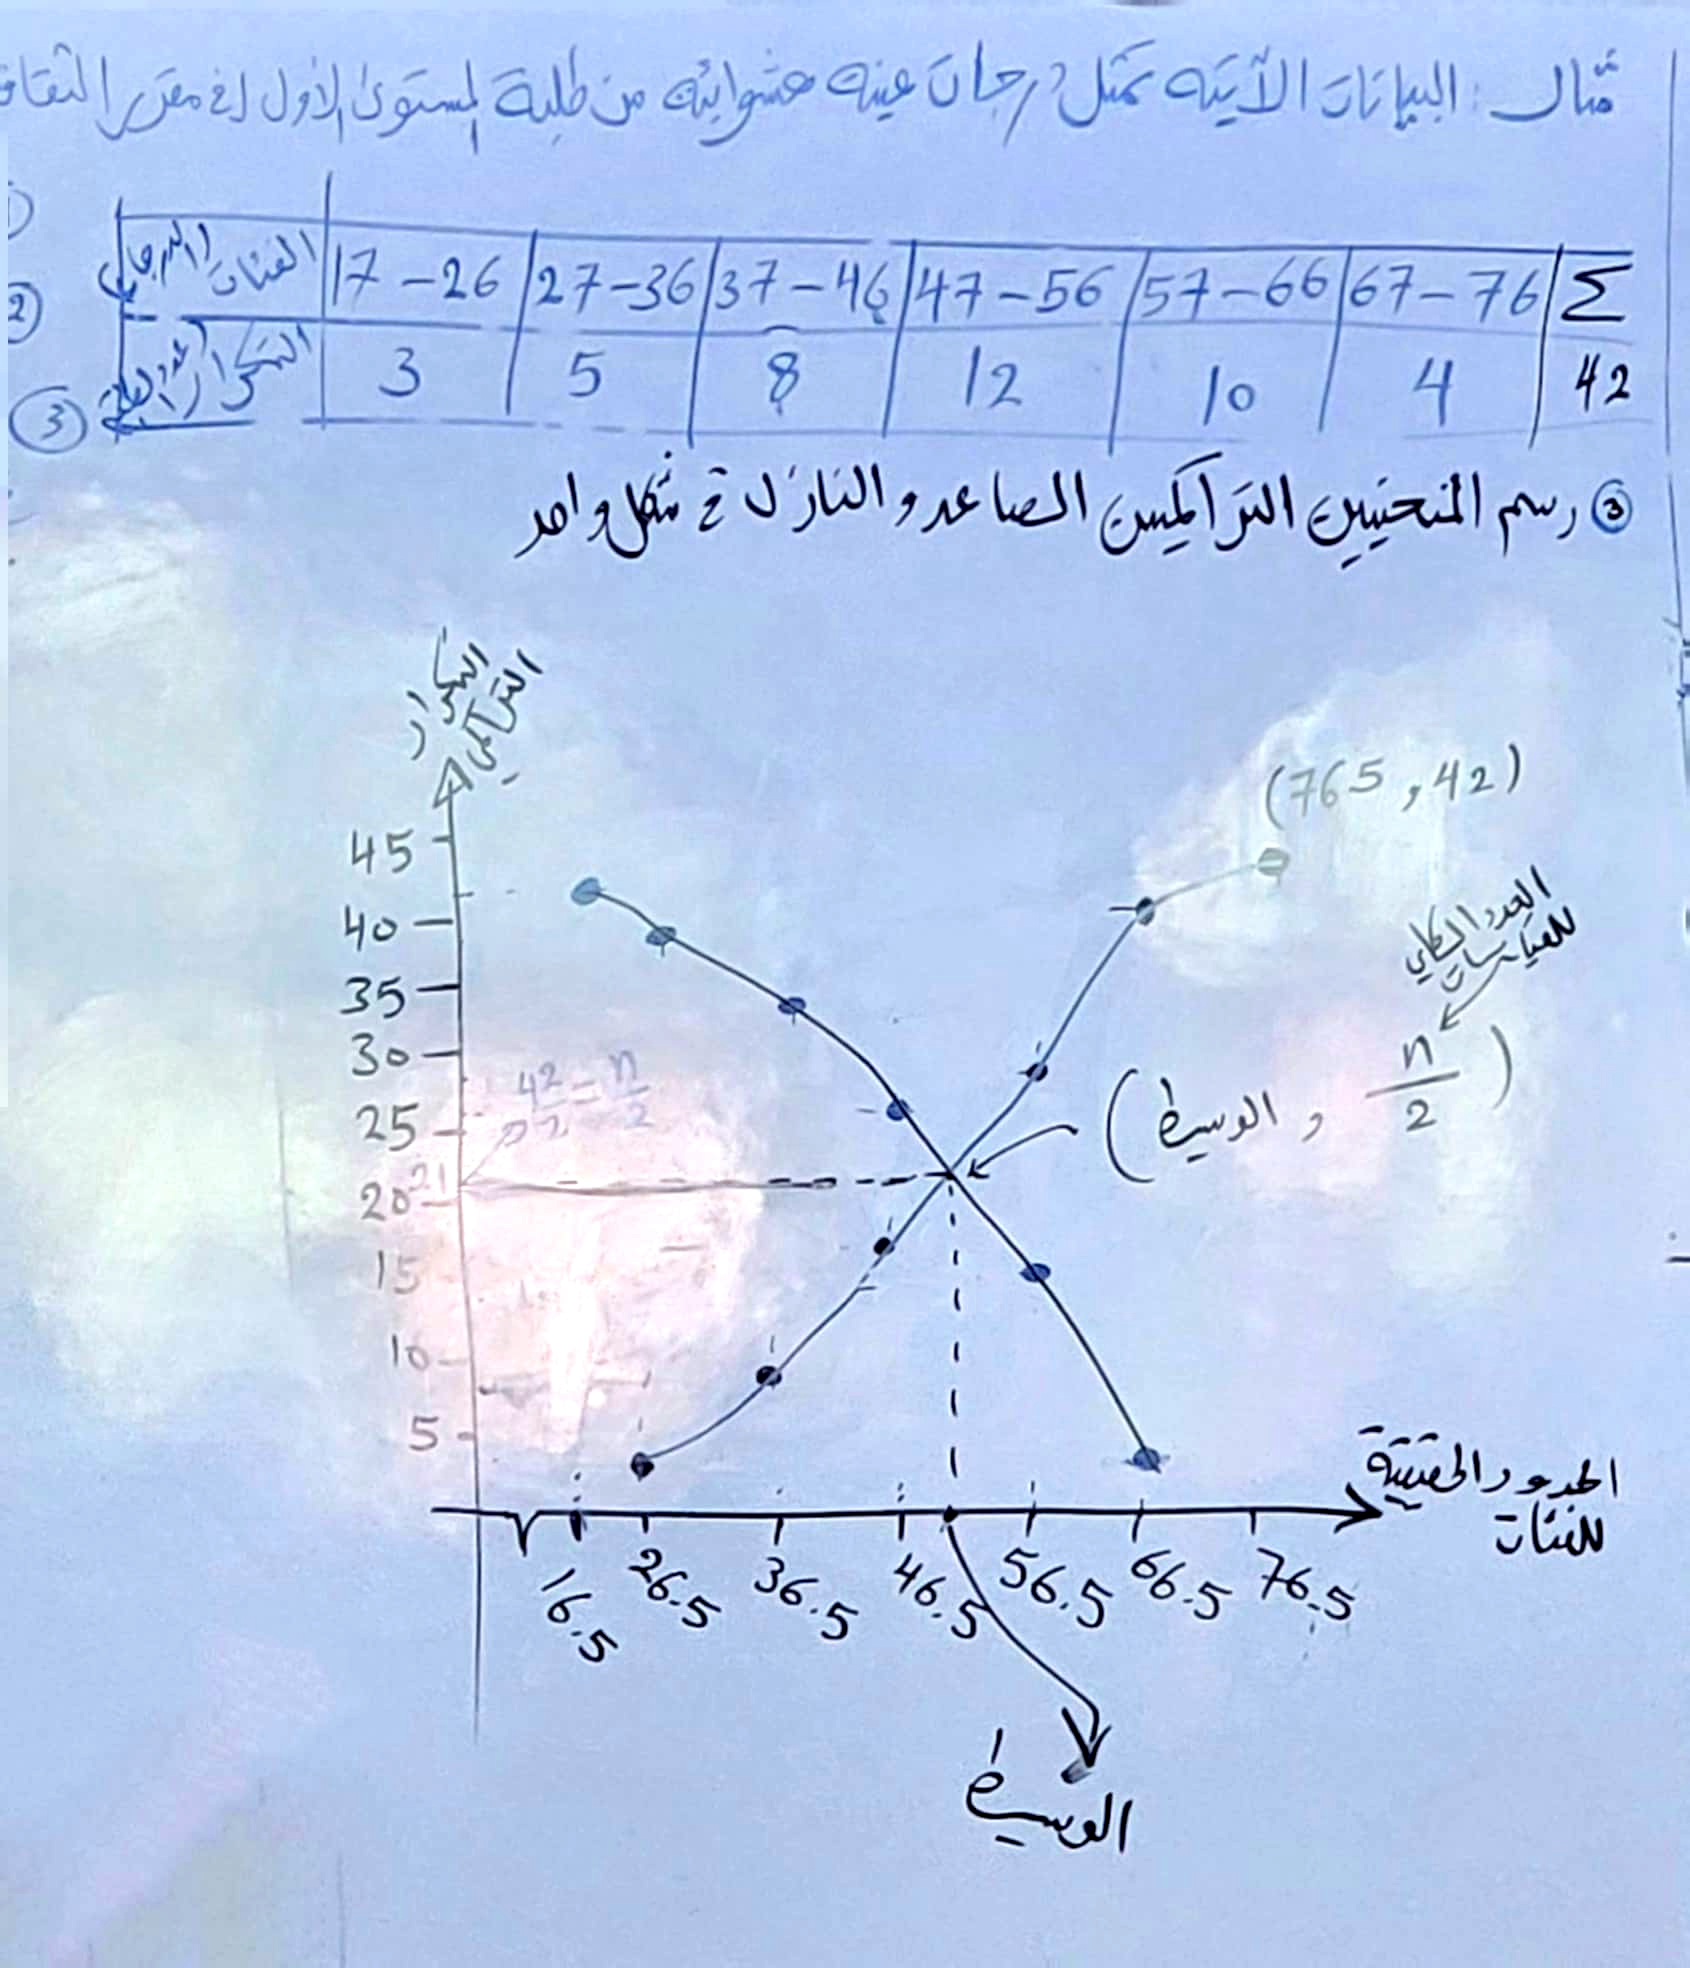 مثال : البيانات الآتية تمثل درجات عينة عشوائية من طلبة المستوى الأول في مقرر الثقافة
الفئات (الدرجات) 17 - 26 27 - 36 37 - 46 47 - 56 57 - 66 67 - 76 Σ
2
التكرار (عدد الطلبة) 3 5 8 12 10 4 42
3
③ رسم المنحنيين التراكميين الصاعد و النازل في شكل واحد
التكرار
التراكمي
(765 , 42)
45
40
العدد الكلي
للقياسات
35
30
42/2 = n/2
(الوسيط , n/2)
25
21
20
15
10
5
الحدود الحقيقية
للفئات
16.5 26.5 36.5 46.5 56.5 66.5 76.5
الوسيط